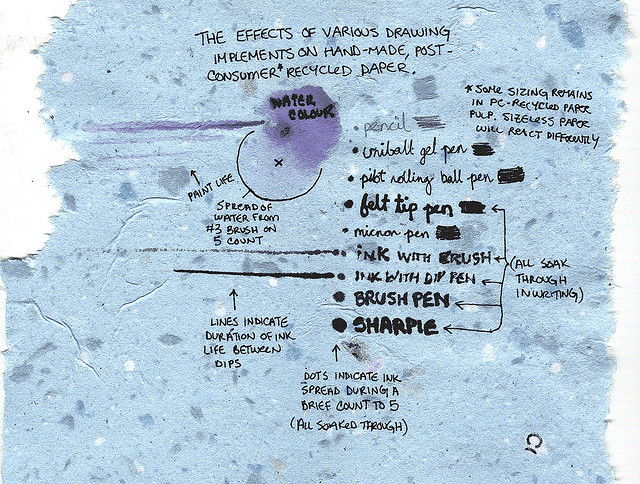 THE EFFECTS OF VARIOUS DRAWING
IMPLEMENTS ON HAND-MADE, POST-
CONSUMER* RECYCLED PAPER.
* SOME SIZING REMAINS
IN PC-RECYCLED PAPER
PULP. SIZELESS PAPER
WILL REACT DIFFERENTLY
WATER
COLOUR
PAINT LIFE
X
SPREAD OF
WATER FROM
#3 BRUSH ON
5 COUNT
• pencil
• uniball gel pen
• pilot rolling ball pen
• felt tip pen
• micron pen
• INK WITH BRUSH
• INK WITH DIP PEN
• BRUSH PEN
• SHARPIE
(ALL SOAK
THROUGH
IN WRITING)
LINES INDICATE
DURATION OF INK
LIFE BETWEEN
DIPS
DOTS INDICATE INK
SPREAD DURING A
BRIEF COUNT TO 5
(ALL SOAKED THROUGH)